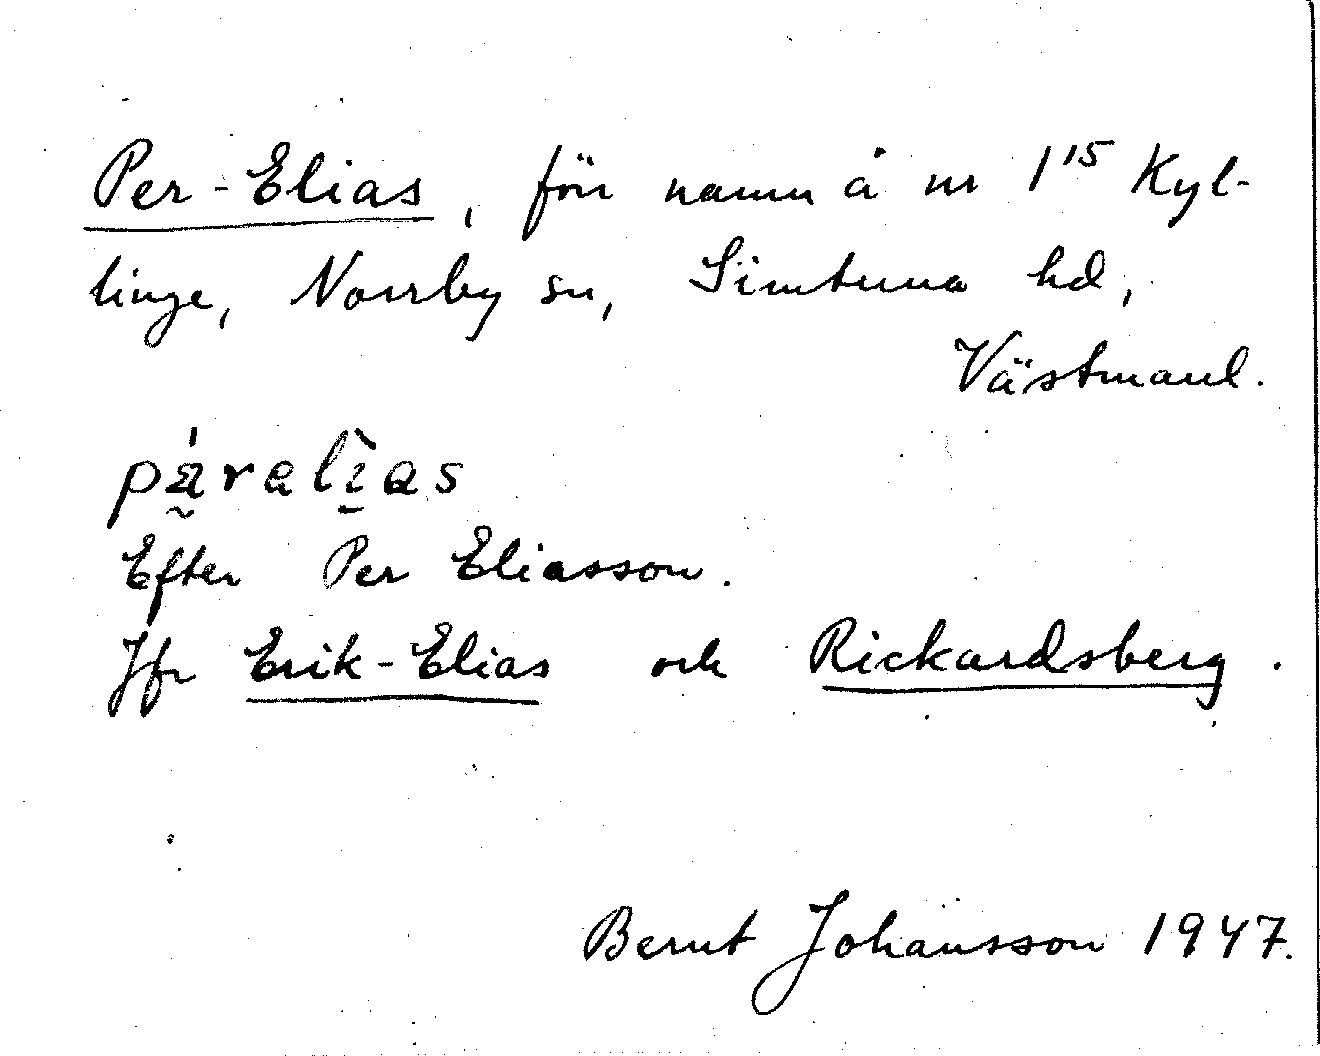 Per-Elias, för namn å nr 1¹⁵ Kyl-
linge, Norrby sn, Simtuna hd,
Västmanl.
pä̀ralìas
Efter Per Eliasson.
Jfr Erik-Elias och Rickardsberg.
Bernt Johansson 1947.